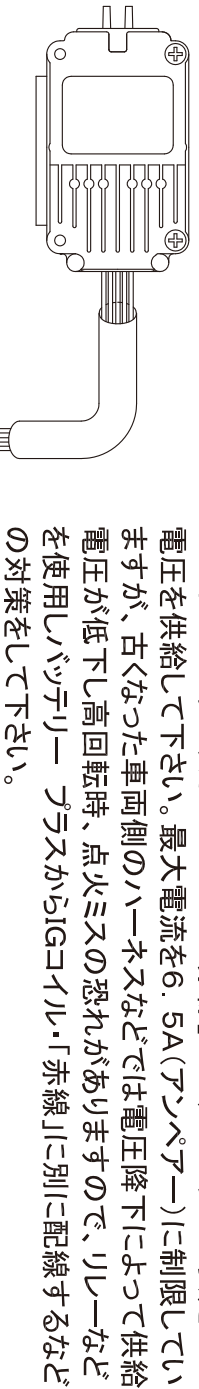 電圧を供給して下さい。最大電流を6.5A(アンペアー)に制限してい
ますが、古くなった車両側のハーネスなどでは電圧降下によって供給
電圧が低下し高回転時、点火ミスの恐れがありますので、リレーなど
を使用しバッテリー プラスからIGコイル・「赤線」に別に配線するなど
の対策をして下さい。